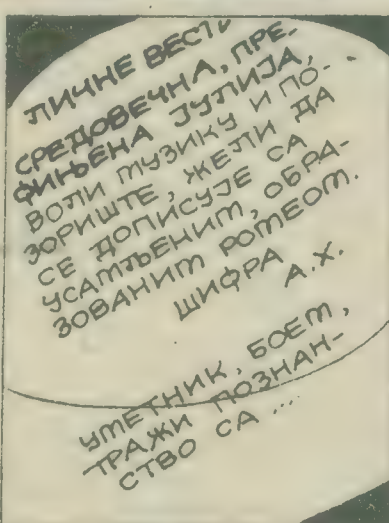 ЛИЧНЕ ВЕСТИ
СРЕДОВЕЧНА, ПРЕ-
ФИЊЕНА ЈУЛИЈА,
ВОЛИ МУЗИКУ И ПО-
ЗОРИШТЕ, ЖЕЛИ ДА
СЕ ДОПИСУЈЕ СА
УСАМЉЕНИМ, ОБРА-
ЗОВАНИМ РОМЕОМ.
ШИФРА
А.Х.
УМЕТНИК, БОЕМ,
ТРАЖИ ПОЗНАН-
СТВО СА ...